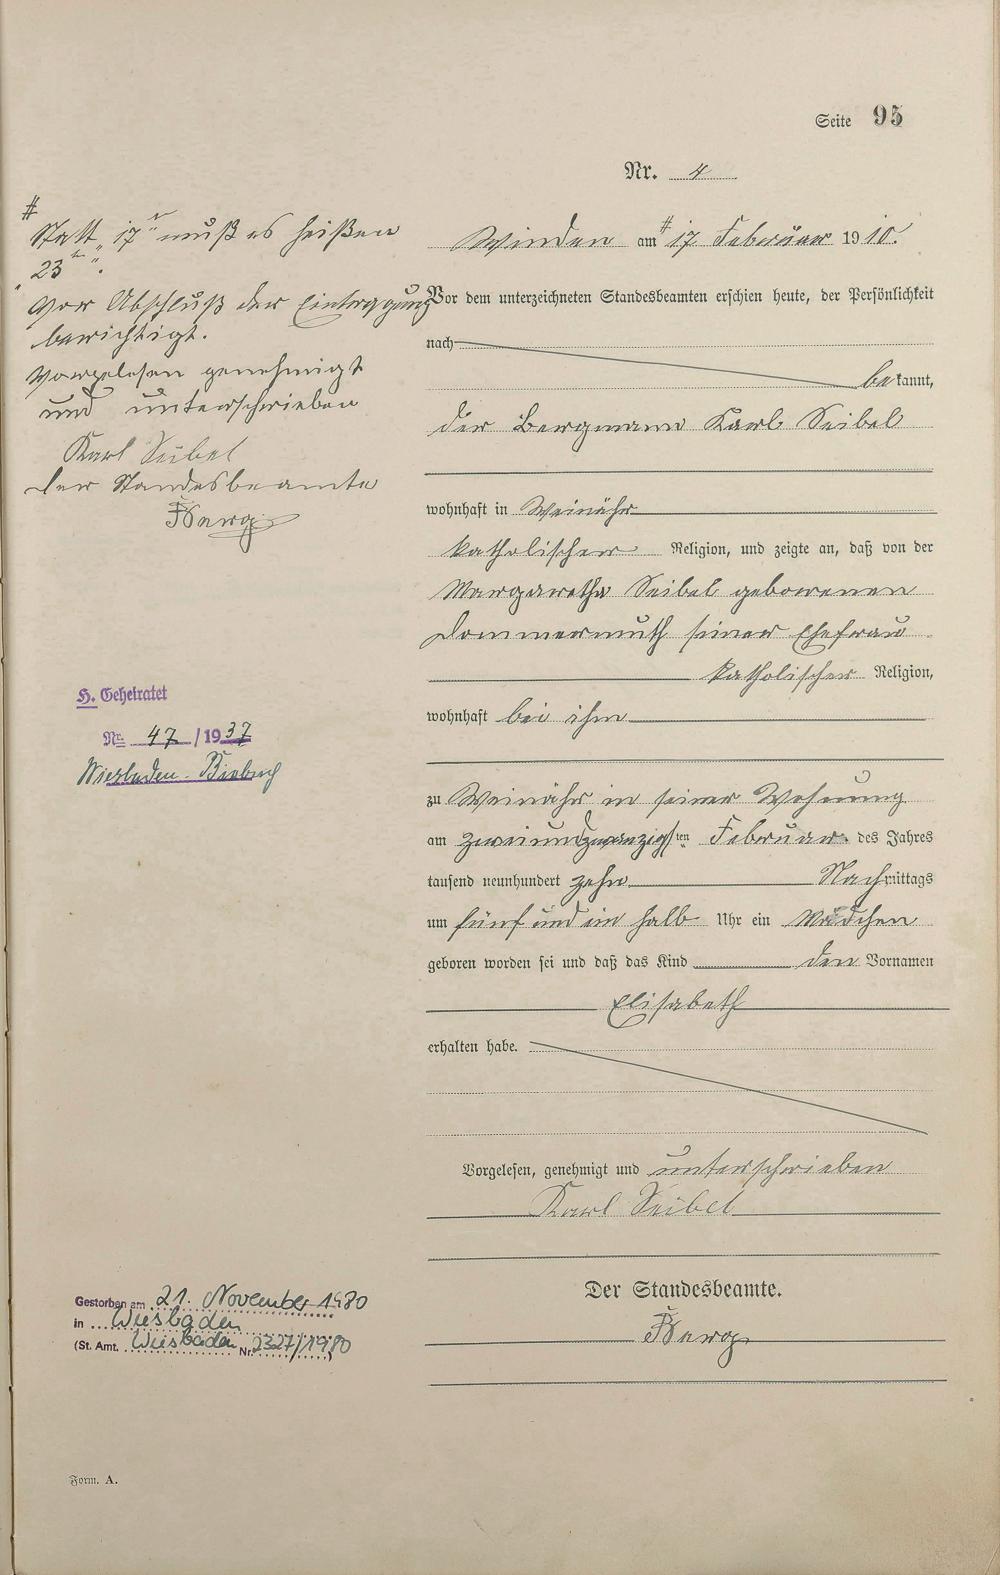 Seite 95
Nr. 4
#
Statt „17ⁿ“ muß es heißen
„23ⁿ“.
Vor Abschluß der Eintragung
berichtigt.
Vorgelesen genehmigt
und unterschrieben
Karl Seibel
der Standesbeamte
Winden am # 17. Februar 1910.
Vor dem unterzeichneten Standesbeamten erschien heute, der Persönlichkeit
nach
bekannt,
der Bergmann Karl Seibel
wohnhaft in Weinähr
katholischer Religion, und zeigte an, daß von der
Margaretha Seibel geborenen
Dommermuth seiner Ehefrau
katholischer Religion,
wohnhaft bei ihm
zu Weinähr in seiner Wohnung
am zweiundzwanzigsten Februar des Jahres
tausend neunhundert zehn Nachmittags
um fünf und ein halb Uhr ein Mädchen
geboren worden sei und daß das Kind den Vornamen
Elisabeth
erhalten habe.
Vorgelesen, genehmigt und unterschrieben
Karl Seibel
Der Standesbeamte.
H. Geheiratet
Nr. 47 / 1937
Wiesbaden-Biebrich
Gestorben am 21. November 1980
in Wiesbaden
(St. Amt. Wiesbaden Nr. 2327/1980)
Form. A.